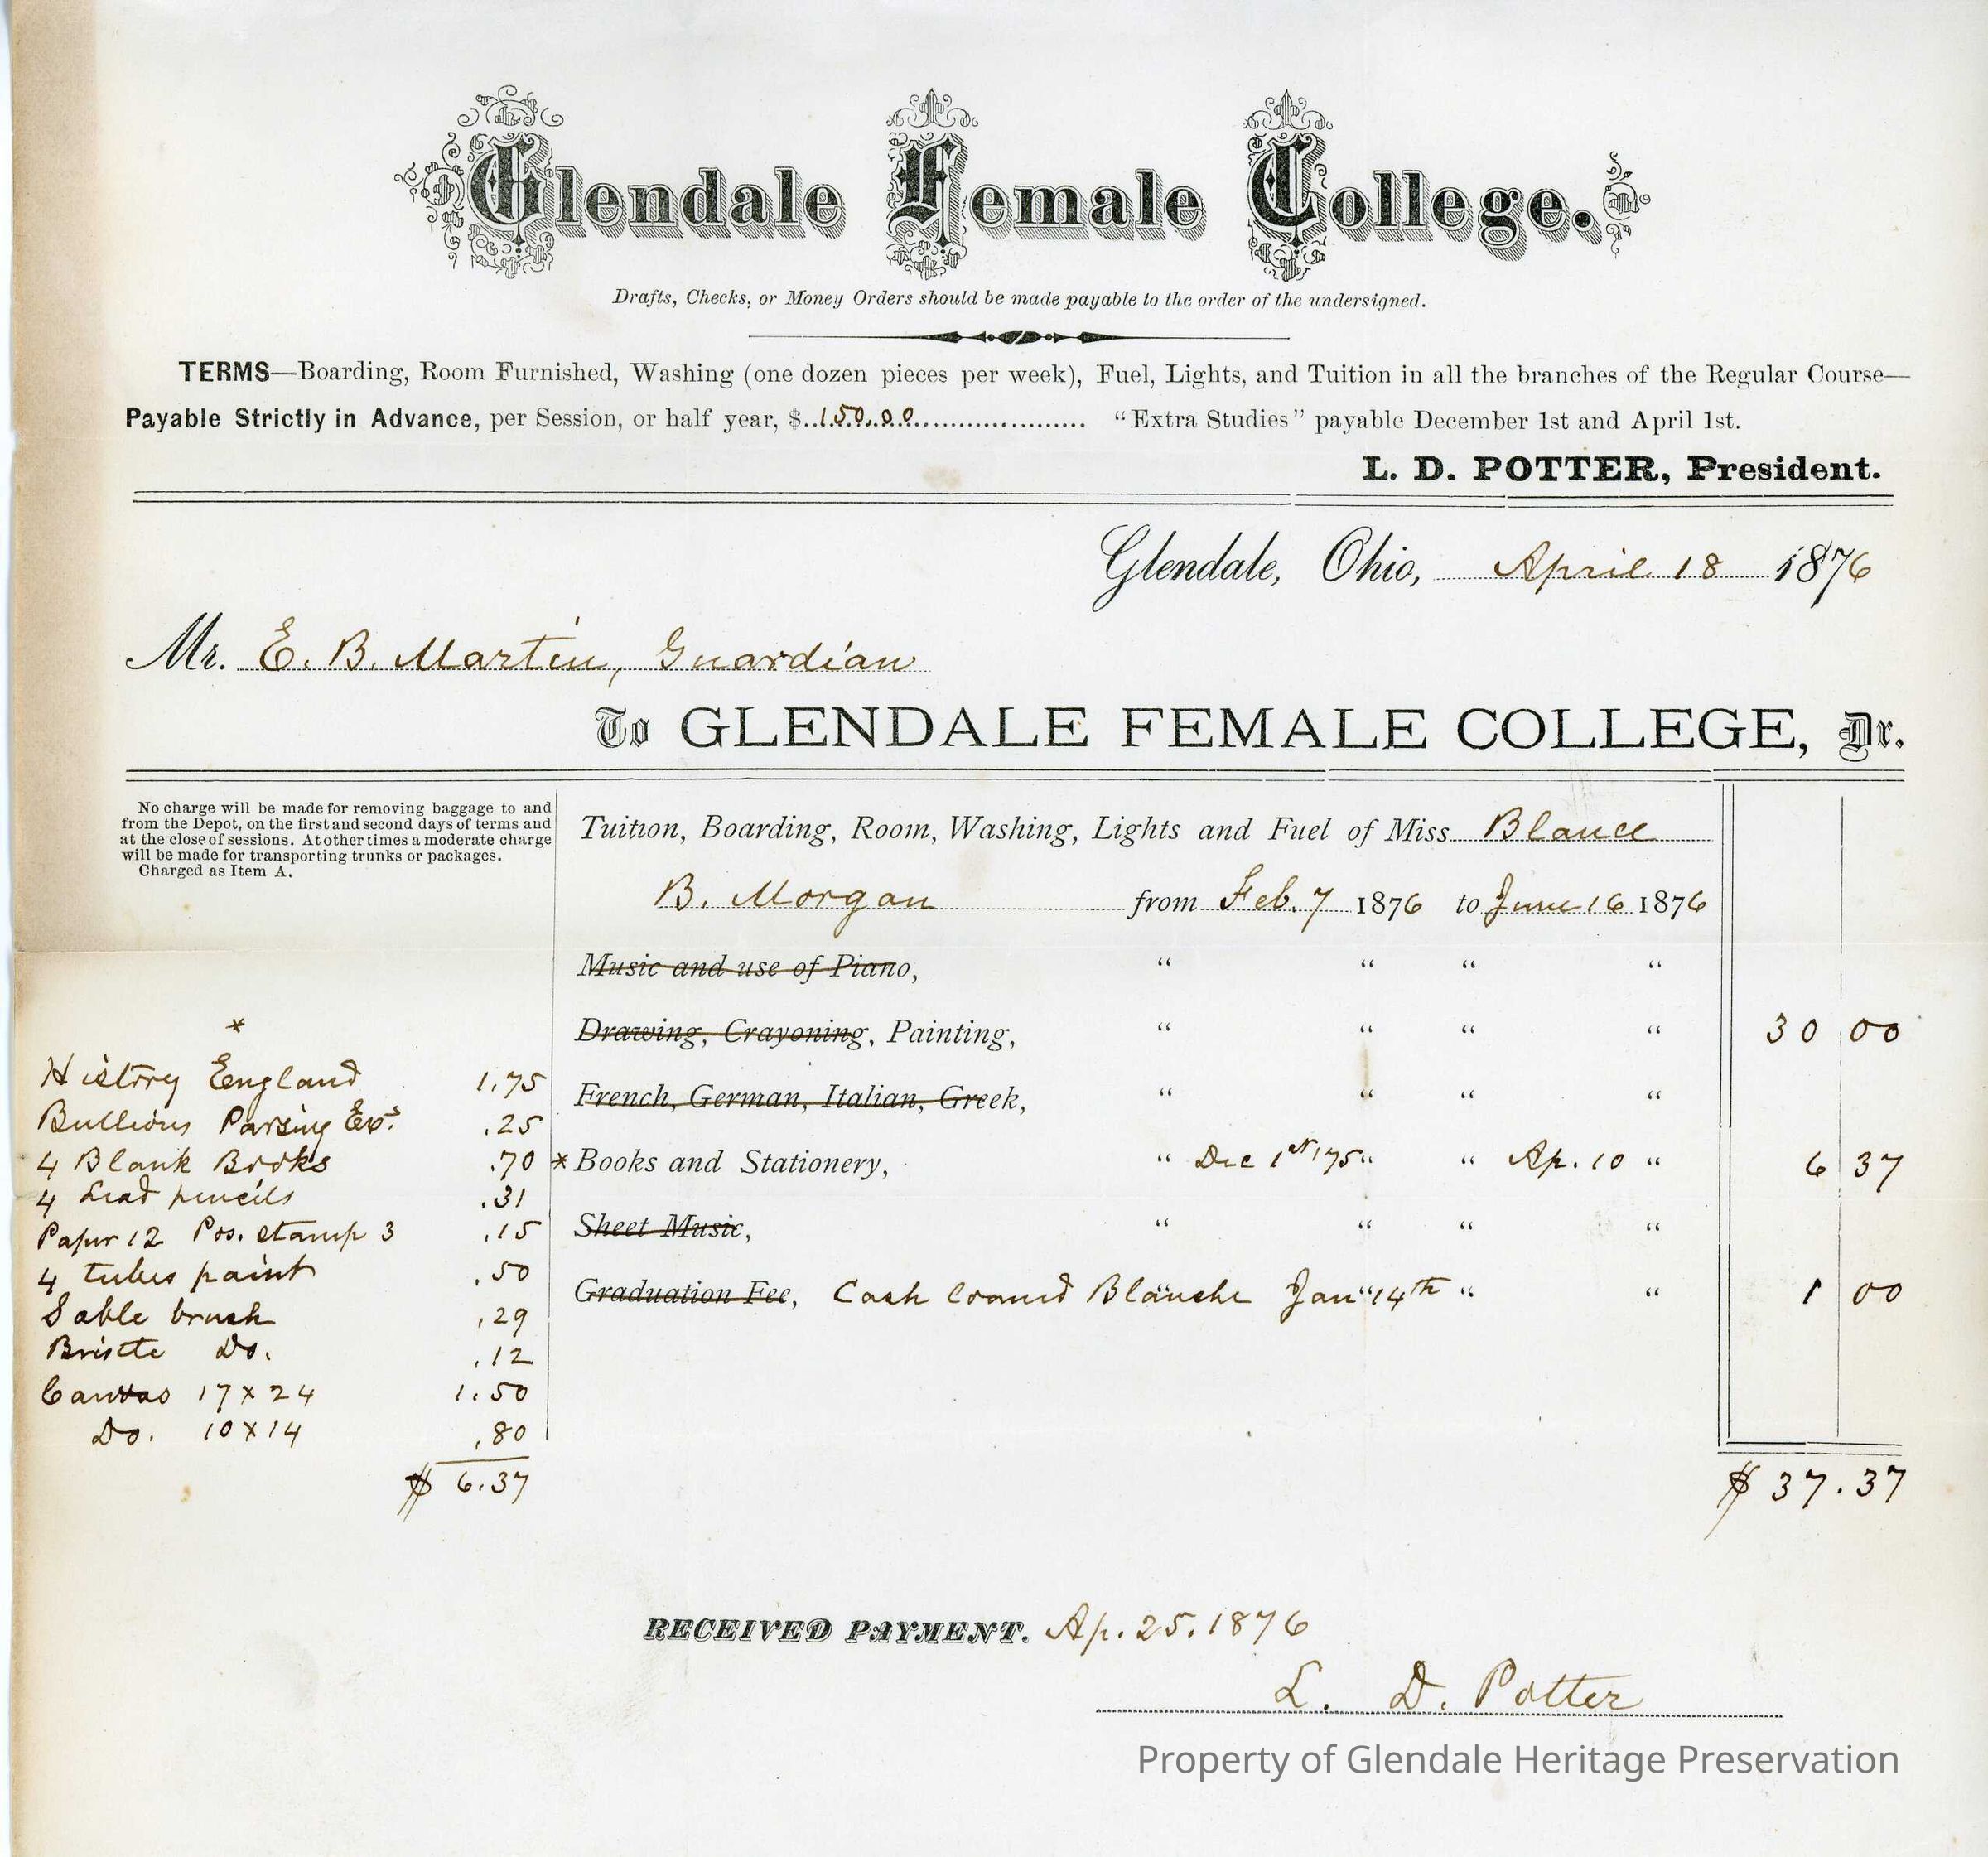 Glendale Female College.
Drafts, Checks, or Money Orders should be made payable to the order of the undersigned.
TERMS—Boarding, Room Furnished, Washing (one dozen pieces per week), Fuel, Lights, and Tuition in all the branches of the Regular Course—
Payable Strictly in Advance, per Session, or half year, $ 150.00 "Extra Studies" payable December 1st and April 1st.
L. D. POTTER, President.
Glendale, Ohio, April 18 1876
Mr. E. B. Martin, Guardian
To GLENDALE FEMALE COLLEGE, Dr.
No charge will be made for removing baggage to and
from the Depot, on the first and second days of terms and
at the close of sessions. At other times a moderate charge
will be made for transporting trunks or packages.
Charged as Item A.
Tuition, Boarding, Room, Washing, Lights and Fuel of Miss Blance
B. Morgan from Feb. 7 1876 to June 16 1876
Music and use of Piano, " " " "
Drawing, Crayoning, Painting, " " " " 30 00
French, German, Italian, Greek, " " " "
*Books and Stationery, " Dec 1st 75 " " Ap. 10 " 6 37
Sheet Music, " " " "
Graduation Fee, Cash loaned Blanche Jan 14th " " 1 00
$ 37.37
*
History England 1.75
Bullions Parsing Exs. .25
4 Blank Books .70
4 Lead pencils .31
Paper 12 Pos. stamp 3 .15
4 tubes paint .50
Sable brush .29
Bristle Do. .12
Canvas 17 x 24 1.50
Do. 10 x 14 .80
$ 6.37
RECEIVED PAYMENT. Ap. 25. 1876
L. D. Potter
Property of Glendale Heritage Preservation